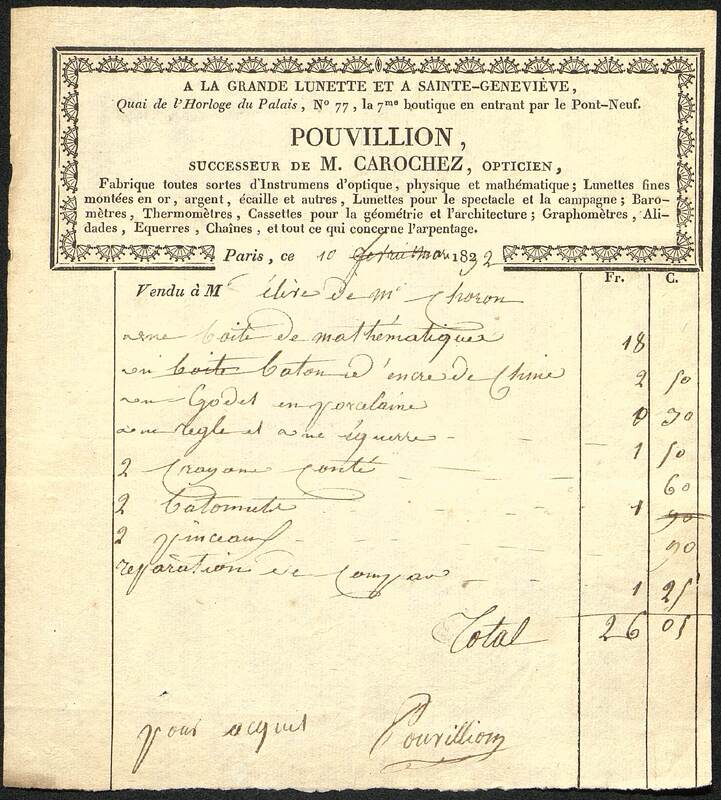 A LA GRANDE LUNETTE ET A SAINTE-GENEVIÈVE,
Quai de l'Horloge du Palais, No 77, la 7me boutique en entrant par le Pont-Neuf.
POUVILLION,
SUCCESSEUR DE M. CAROCHEZ, OPTICIEN,
Fabrique toutes sortes d'Instrumens d'optique, physique et mathématique; Lunettes fines
montées en or, argent, écaille et autres, Lunettes pour le spectacle et la campagne; Baro-
mètres, Thermomètres, Cassettes pour la géométrie et l'architecture; Graphomètres, Ali-
dades, Equerres, Chaînes, et tout ce qui concerne l'arpentage.
Paris, ce 10 mars 1832
Fr. C.
Vendu à Mr élève de Mr Choron
une boite de mathématique 18
un boite baton d'encre de Chine 2 50
un Godet en porcelaine 0 30
une regle et une équerre 1 50
2 Crayons Conté 60
2 1 90
2 pinceaux 90
reparation de compas 1 25
Total 26 05
pour acquit Pouvillion